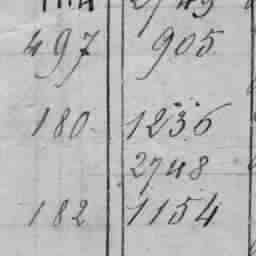 497 905
180 1236
2748
182 1154